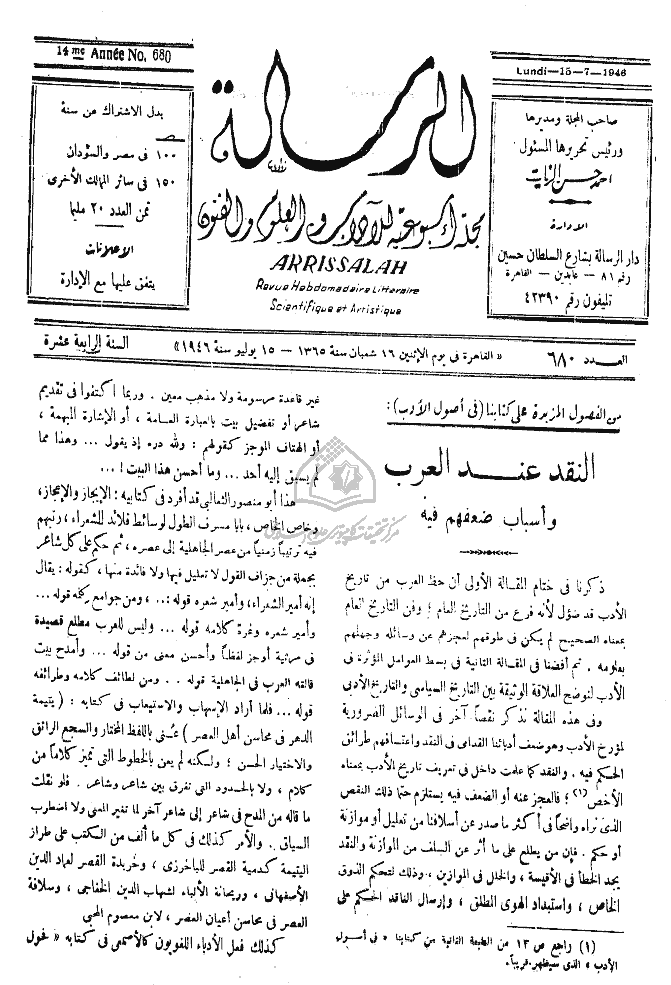 14me Année No. 680
بدل الاشتراك عن سنة
١٠٠ فى مصر والسودان
١٥٠ فى سائر الممالك الأخرى
ثمن العدد ٢٠ مليما
الاعلانات
يتفق عليها مع الإدارة
الرسالة
مجلة أسبوعية للآداب والعلوم والفنون
ARRISSALAH
Revue Hebdomadaire Littéraire
Scientifique et Artistique
Lundi—15—7—1946
صاحب المجلة ومديرها
ورئيس تحريرها المسئول
احمد حسن الزيات
الادارة
دار الرسالة بشارع السلطان حسين
رقم ٨١ — عابدين — القاهرة
تليفون رقم ٤٢٣٩٠
العدد ٦٨٠
« القاهرة فى يوم الإثنين ١٦ شعبان سنة ١٣٦٥ — ١٥ يوليو سنة ١٩٤٦ »
السنة الرابعة عشرة
من الفصول المزيدة على كتابنا (فى أصول الأدب):
النقد عند العرب
وأسباب ضعفهم فيه
ذكرنا فى ختام المقالة الأولى أن حظ العرب من تاريخ
الأدب قد ضؤل لأنه فرع من التاريخ العام ؛ وفن التاريخ العام
بمعناه الصحيح لم يكن فى طوقهم لعجزهم عن وسائله وجهلهم
بعلومه . ثم أفضنا فى المقالة الثانية فى بسط العوامل المؤثرة فى
الأدب لنوضح العلاقة الوثيقة بين التاريخ السياسى والتاريخ الأدبى
وفى هذه المقالة نذكر نقصاً آخر فى الوسائل الضرورية
لمؤرخ الأدب وهو ضعف أدبائنا القدامى فى النقد واعتسافهم طرائق
الحكم فيه . والنقد كما علمت داخل فى تعريف تاريخ الأدب بمعناه
الأخص (١) ؛ فالعجز عنه أو الضعف فيه يستلزم حتما ذلك النقص
الذى نراه واضحاً فى أكثر ما صدر عن أسلافنا من تعليل أو موازنة
أو حكم . فإن من يطلع على ما أثر عن السلف من الموازنة والنقد
يجد الخطأ فى الأقيسة ، والخلل فى الموازين ، وذلك لتحكم الذوق
الخاص ، واستبداد الهوى المطلق ، وإرسال الناقد الحكم على
(١) راجع ص ١٣ من الطبعة الثانية من كتابنا « فى أصول
الأدب » الذى سيظهر قريباً.
غير قاعدة مرسومة ولا مذهب معين . وربما اكتفوا فى تقديم
شاعر أو تفضيل بيت بالعبارة العامة ، أو الإشارة المبهمة ،
أو الهتاف الموجز كقولهم : ولله دره إذ يقول ... وهذا مما
لم يسبق إليه أحد ... وما أحسن هذا البيت ! ...
هذا أبو منصور الثعالبى قد أفرد فى كتابيه : الإيجاز والإعجاز،
وخاص الخاص ، بابا مسرف الطول لوسائط قلائد للشعراء ، رتبهم
فيه ترتيباً زمنياً من عصر الجاهلية إلى عصره ، ثم حكم على كل شاعر
بجملة من جزاف القول لا تعليل فيها ولا فائدة منها ، كقوله : يقال
إنه أمير الشعراء، وأمير شعره قوله : .. ، ومن جوامع كلمه قوله ...
وأمير شعره وغرة كلامه قوله ... وليس للعرب مطلع قصيدة
فى مرثية أوجز لفظاً وأحسن معنى من قوله ... وأمدح بيت
قالته العرب فى الجاهلية قوله ... ومن لطائف كلامه وطرائفه
قوله ... فلما أراد الإسهاب والاستيعاب فى كتابه : ( يتيمة
الدهر فى محاسن أهل العصر ) عُنى باللفظ المختار والسجع الرائق
والاختيار الحسن ؛ ولكنه لم يعن بالخطوط التى تميز كلاماً من
كلام ، ولا بالحدود التى تفرق بين شاعر وشاعر . فلو نقلت
ما قاله من المدح فى شاعر إلى شاعر آخر لما تغير المعنى ولا اضطرب
السياق . والأمر كذلك فى كل ما ألف من الكتب على طراز
اليتيمة كدمية القصر للباخرزى ، وخريدة القصر لعماد الدين
الأصفهانى ، وريحانة الألباء لشهاب الدين الخفاجى ، وسلافة
العصر فى محاسن أعيان العصر ، لابن معصوم المحبى
كذلك فعل الأدباء اللغويون كالأصمعى فى كتابه « فحول